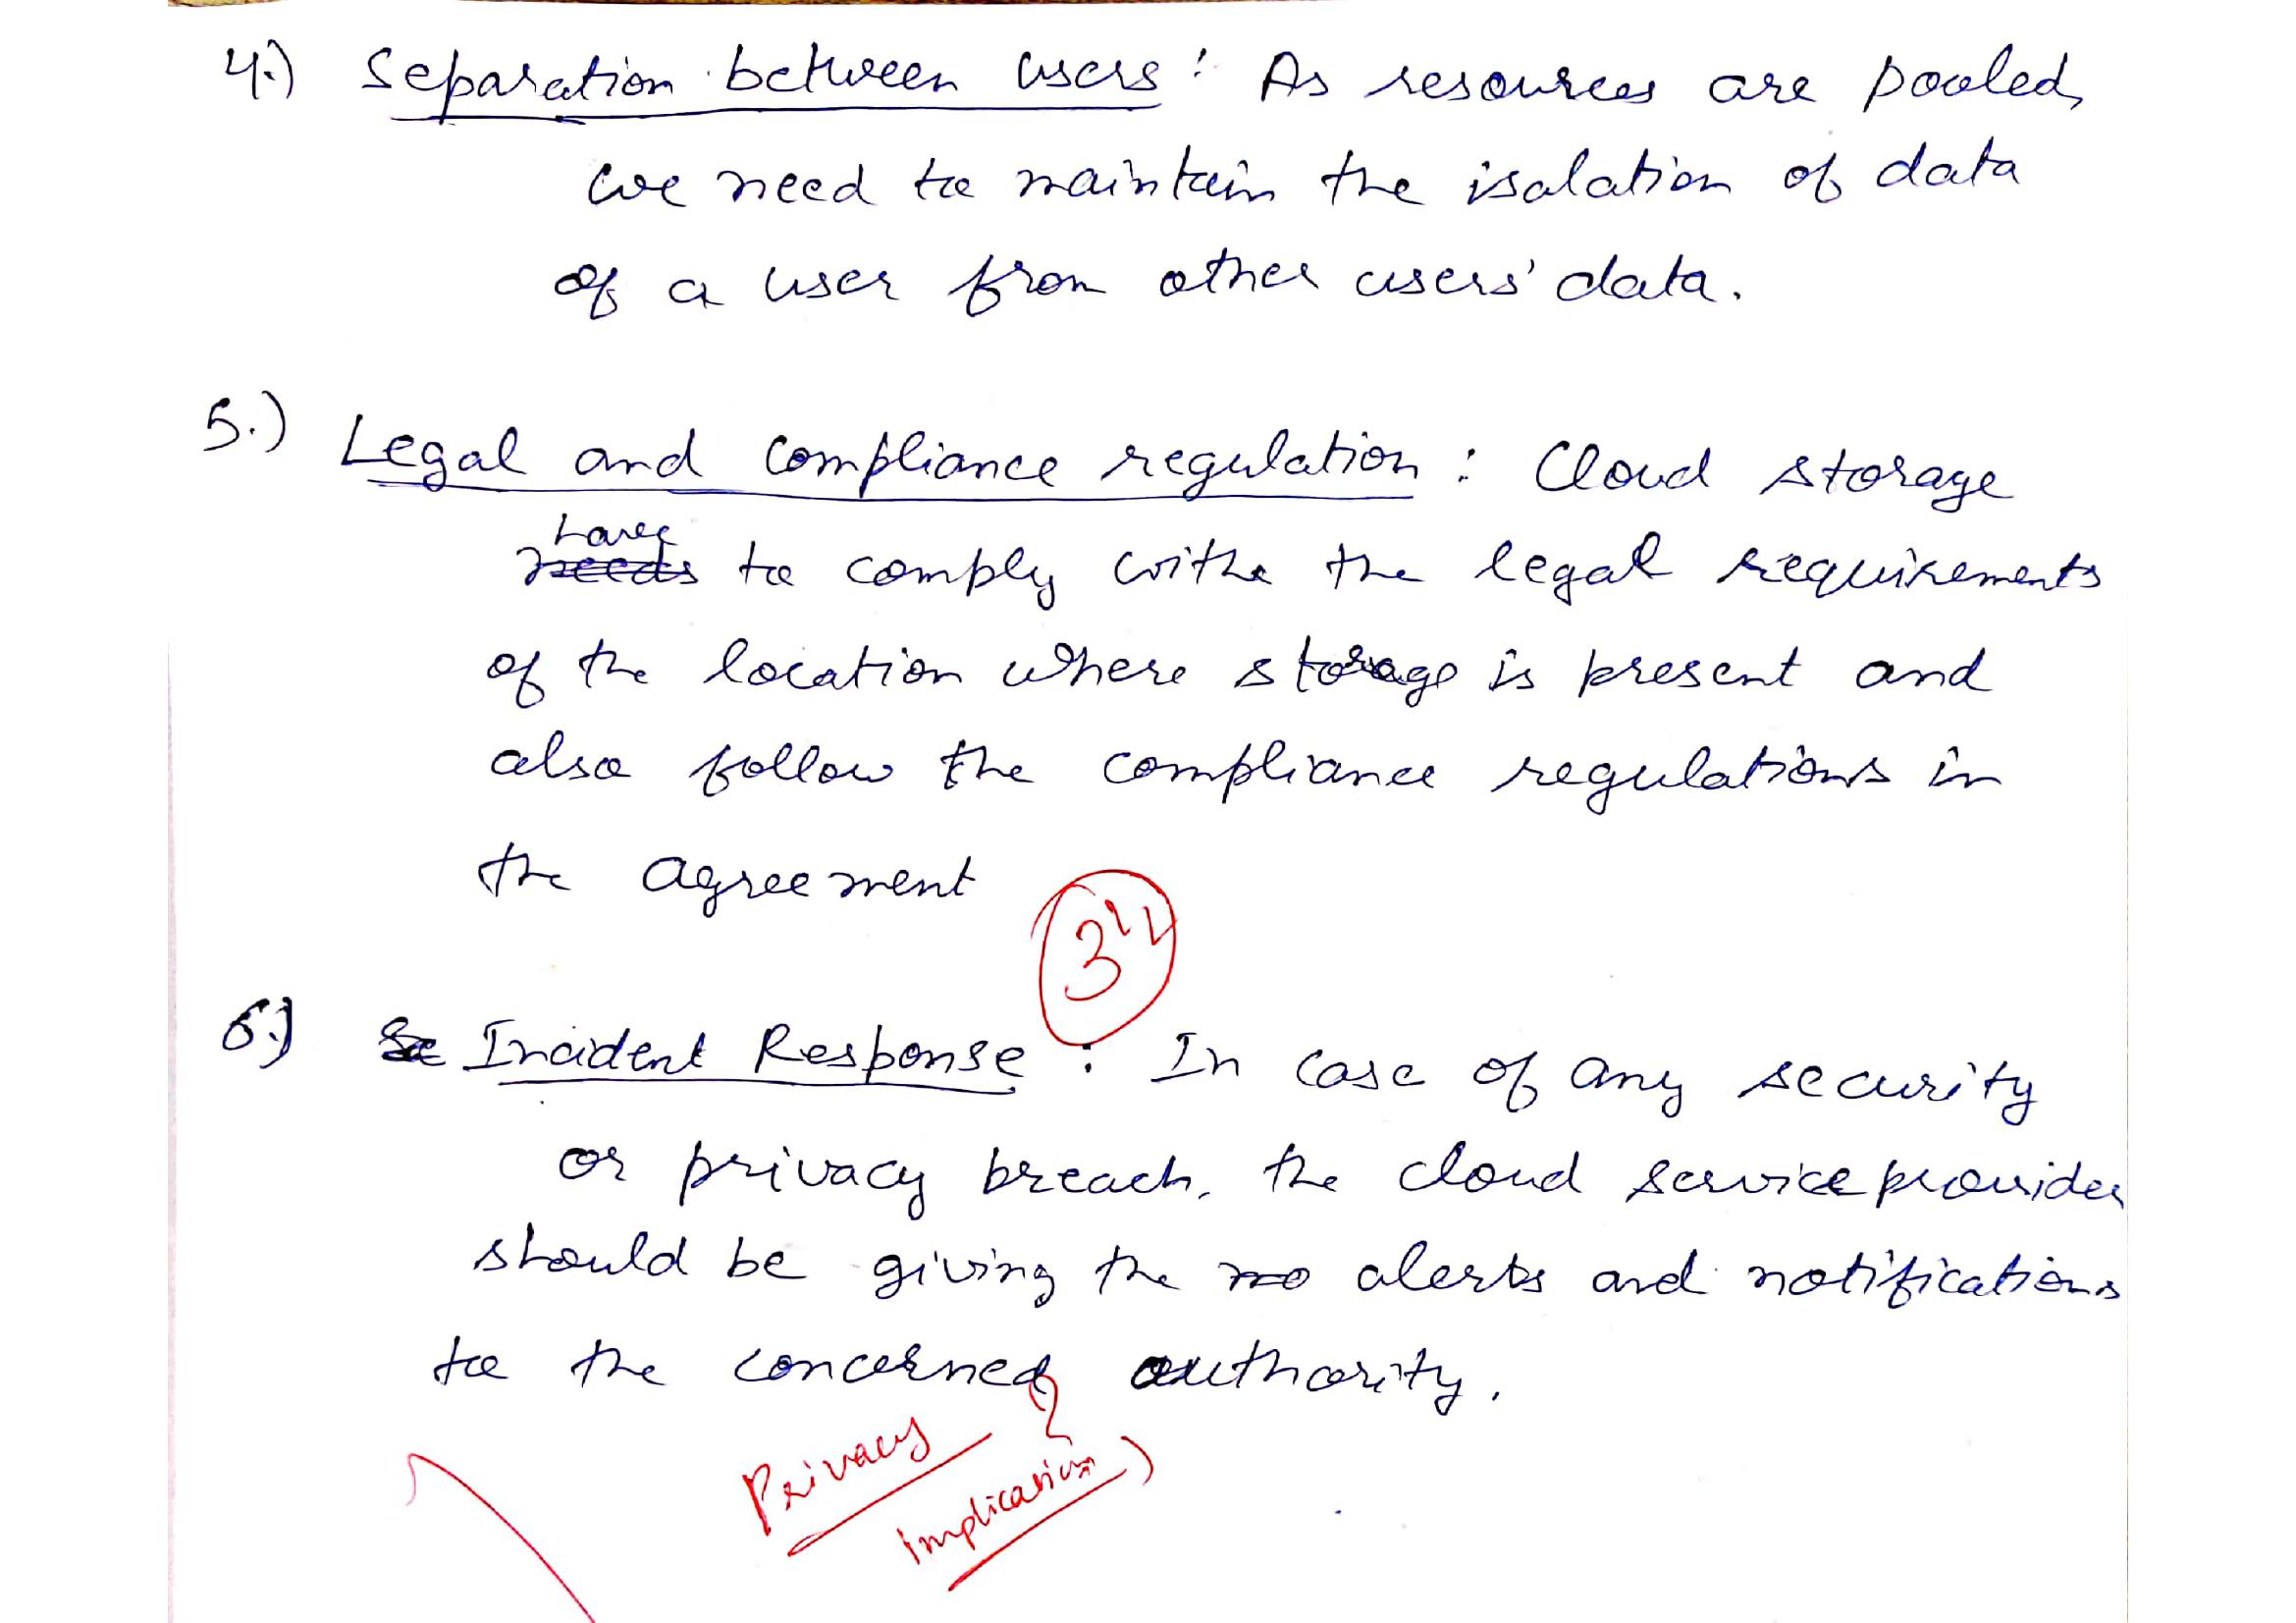 4.) Separation between users: As resources are pooled,
we need to maintain the isolation of data
of a user from other users' data.
5.) Legal and compliance regulation : Cloud storage
haves
needs to comply withe the legal requirements
of the location where storage is present and
also follow the compliance regulations in
the agreement
3 1/2
6.) Se Incident Response : In case of any security
or privacy breach, the cloud service provider
should be giving the no alerts and notifications
to the concerned authority.
Privacy ?
implication)